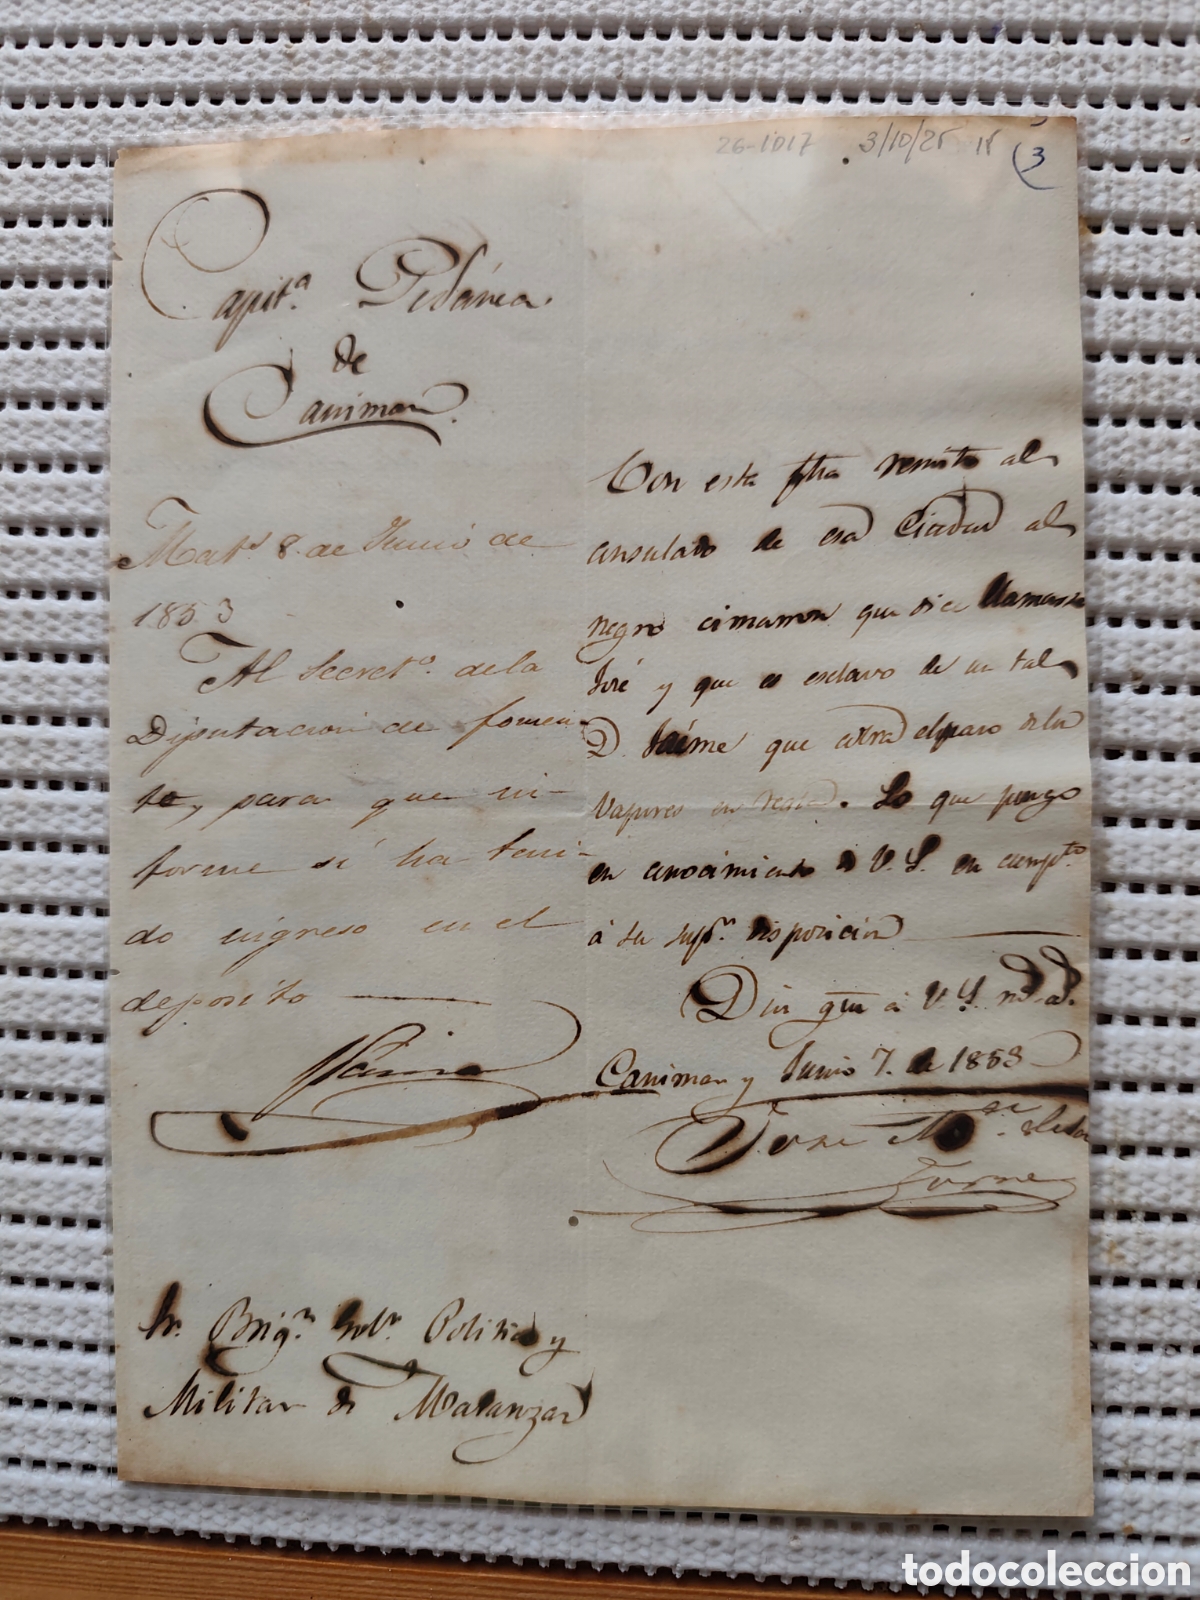 26-1017 3/10/25 15
3
Capit.ª Pedánea
de
Canimar.
Mat.s 8. de Junio de
1853
Al Secret.º de la
Diputacion de fomen-
to, para que in-
forme si ha teni-
do ingreso en el
deposito
Con esta fha remito al
consulado de esa Ciudad al
negro cimarron que dice llamarse
José y que es esclavo de un tal
D. Jaime que está el paso de los
Vapores en regla. Lo que pongo
en conocimiento de V.S. en cumpt.to
á su sup.or disposicion
Dios gue á V.S. m.s a.s
Canimar y Junio 7. de 1853
Jose M.
Torne
Sr. Brig.r Gob.r Politico y
Militar de Matanzas
todocoleccion